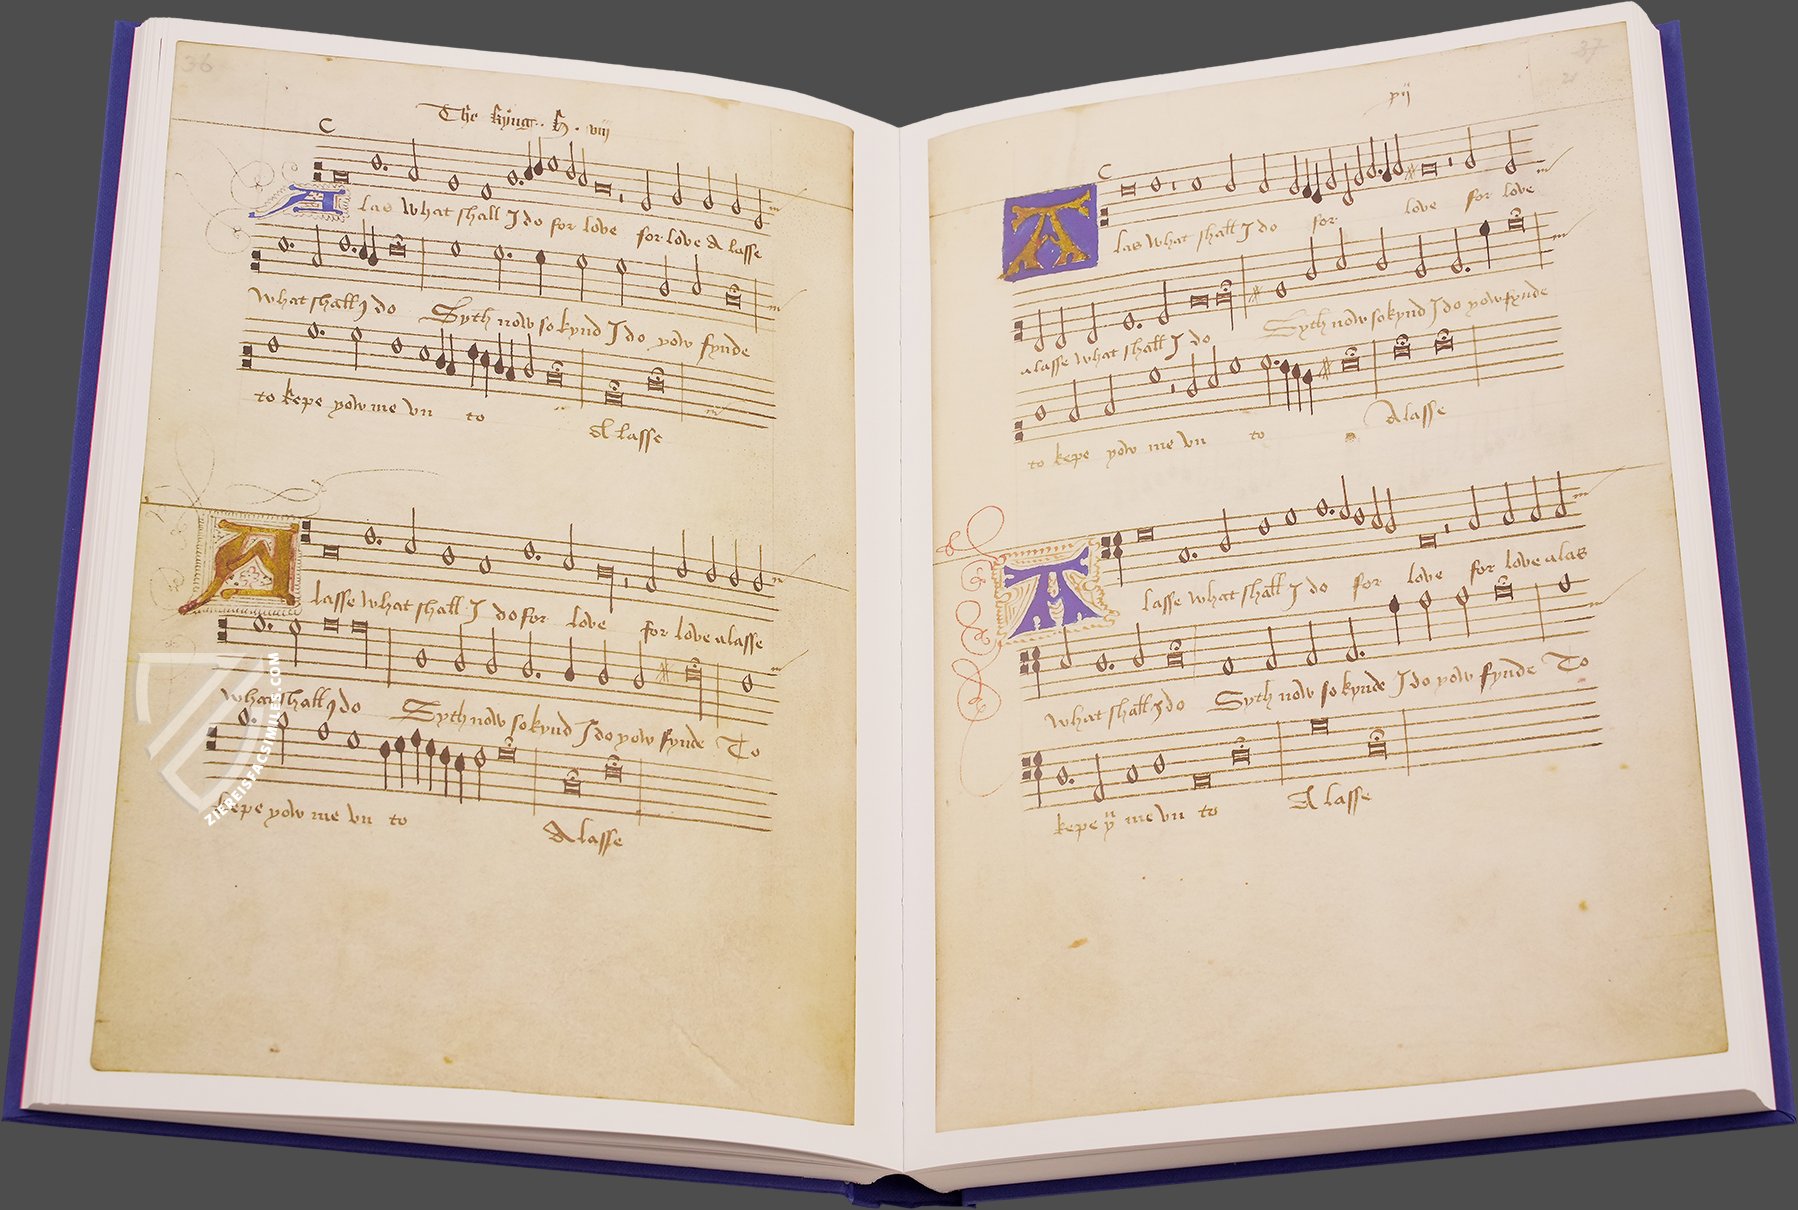 36
The kyng . H . viij
C
A las what shall I do for love for love A lasse
what shall I do Syth now so kynd I do yow fynde
to kepe yow me vn to A lasse
A lasse what shall I do for love for love alasse
what shall I do Syth now so kynd I do yow fynde To
kepe yow me vn to A lasse
ZIEREISFACSIMILES.COM
37
C
A las what shall I do for love for love
alasse what shall I do Syth now so kynd I do yow fynde
to kepe yow me vn to A lasse
A lasse what shall I do for love for love alas
what shall I do Syth now so kynde I do yow fynde To
kepe me vn to A lasse